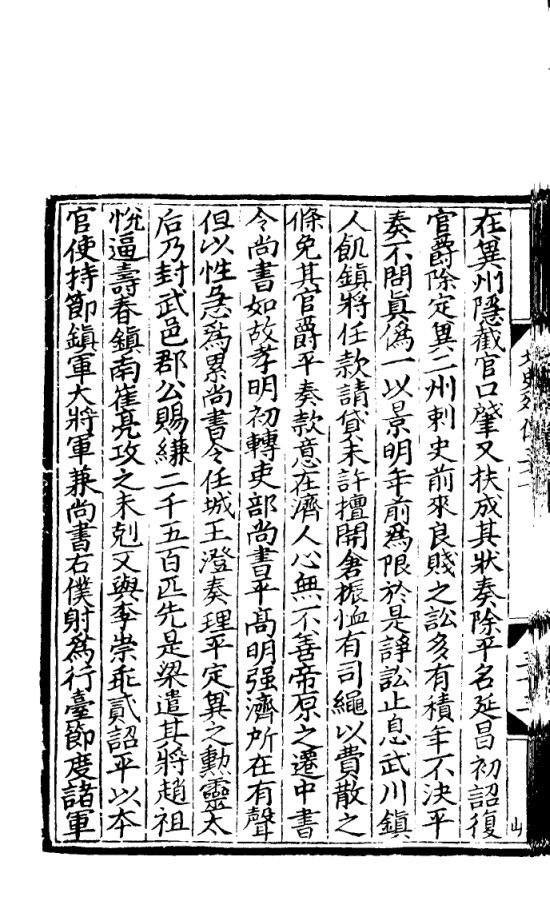 在冀州隱截官口肇又扶成其狀奏除平名延昌初詔復
官爵除定冀二州刺史前來良賤之訟多有積年不決平
奏不問真僞一以景明年前爲限於是諍訟止息武川鎮
人飢鎮將任款請貸未許擅開倉振恤有司繩以費散之
條免其官爵平奏款意在濟人心無不善帝原之遷中書
令尚書如故孝明初轉吏部尚書平高明强濟所在有聲
但以性急爲累尚書令任城王澄奏理平定冀之勲靈太
后乃封武邑郡公賜縑二千五百匹先是梁遣其將趙祖
悅逼壽春鎮南崔亮攻之未剋又與李崇乖貳詔平以本
官使持節鎮軍大將軍兼尚書右僕射爲行臺節度諸軍